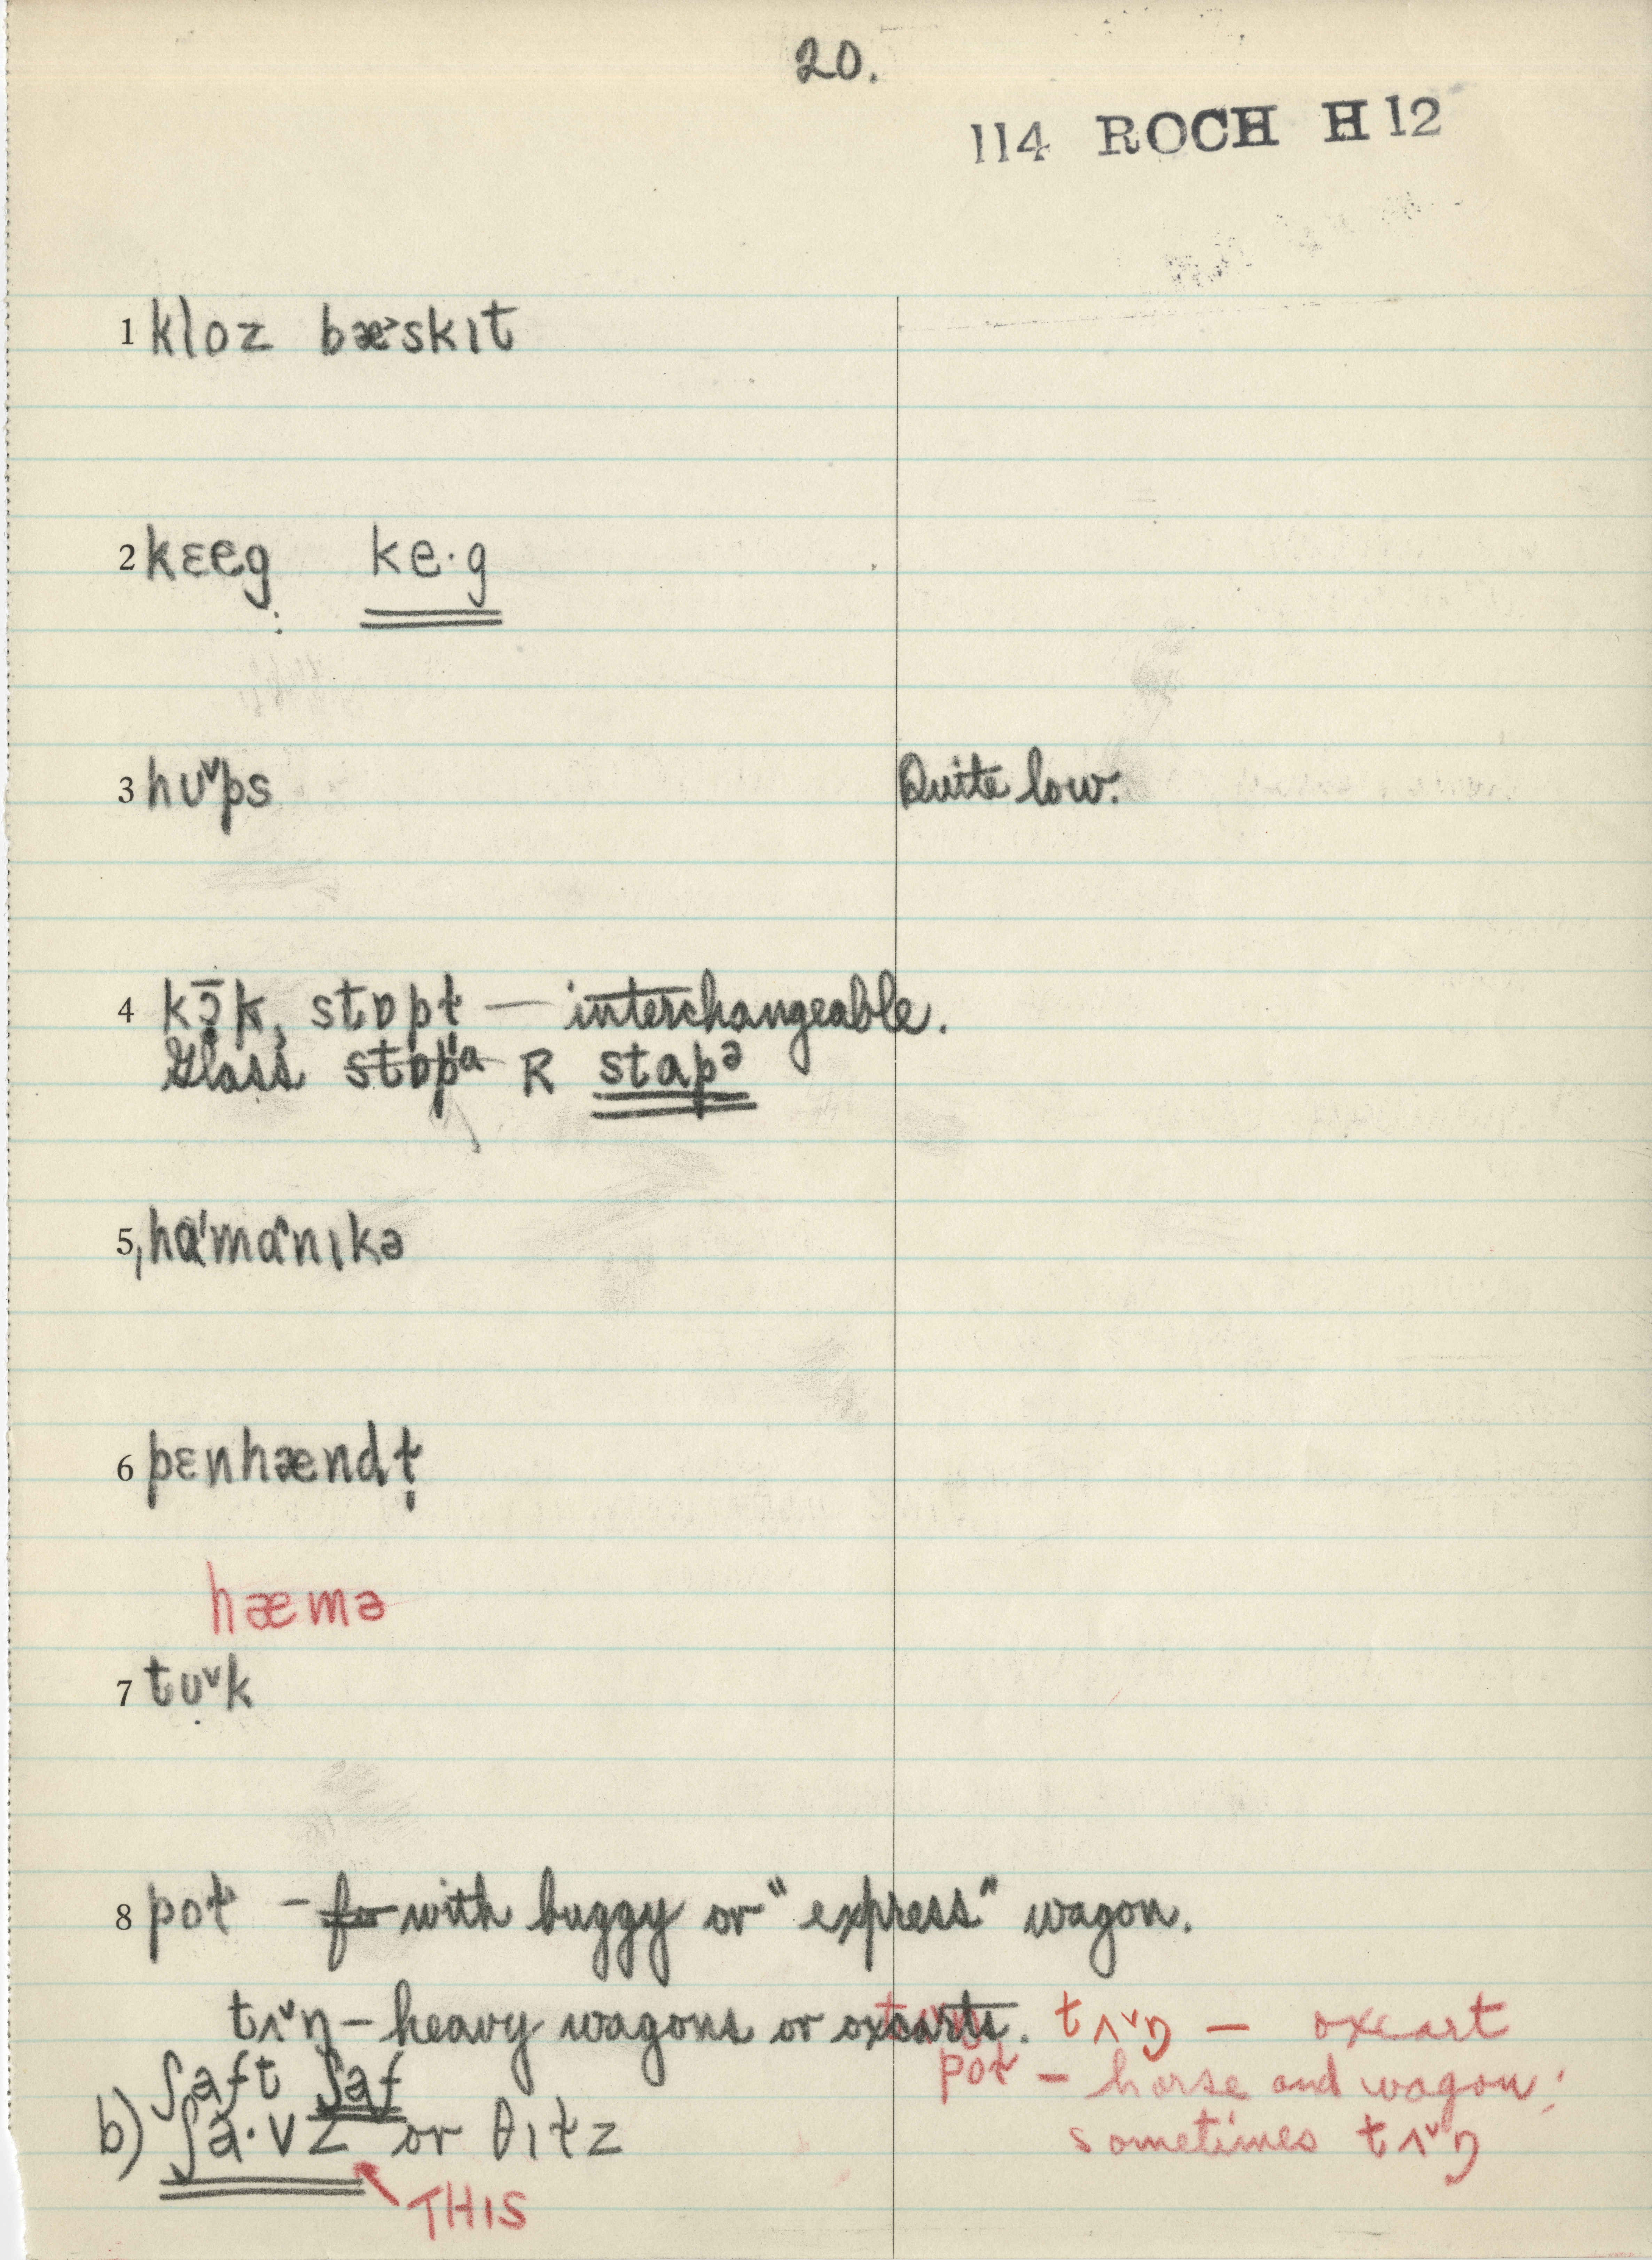 20.
114 ROCH H12
1 kloz bæ˃skɪt
2 kɛeg ke·g
3 hʊ˅ps Quite low.
4 kɔ̄k, stɒpɫ — interchangeable.
Glass R stapᵊ
5 ˌhɑˈmɑ˄nɪkə
6 pɛnhændɫ̩
hæmə
7 tʊ˅k
8 poɫ – with buggy or "express" wagon.
tʌ˅ŋ – heavy wagons or oxcarts. tʌ˅ŋ – oxcart
poɫ – horse and wagon;
ʃaft ʃaf
b) ʃa·vz or θɪɫz sometimes tʌ˅ŋ
THIS